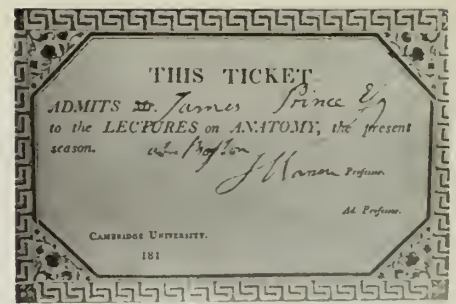 THIS TICKET
ADMITS Mr. James Prince Esq
to the LECTURES on ANATOMY, the present
season. at Boston
J Warren Professor.
Ad. Professor.
CAMBRIDGE UNIVERSITY.
181